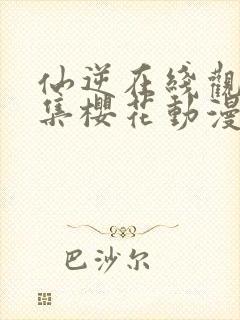 仙逆在线觀
集櫻花動漫
巴沙尔